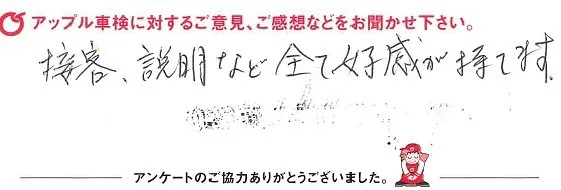 アップル車検に対するご意見、ご感想などをお聞かせ下さい。
接客、説明など全て好感が持てます。
アンケートのご協力ありがとうございました。